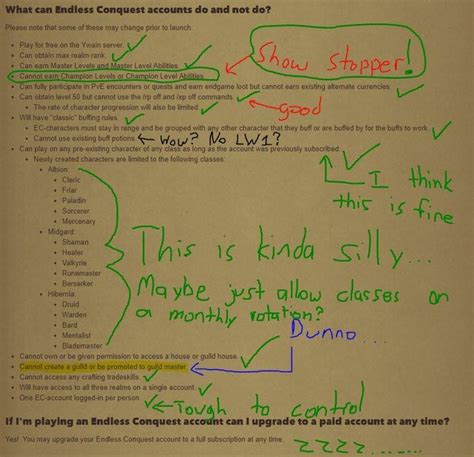 What can Endless Conquest accounts do and not do?
Please note that some of these may change prior to launch.
• Play for free on the Ywain server.
• Can obtain max realm rank.
• Can earn Master Levels and Master Level Abilities
• Cannot earn Champion Levels or Champion Level Abilities
Show stopper!
• Can fully participate in PvE encounters or quests and earn endgame loot but cannot earn existing alternate currencies
• Can obtain level 50 but cannot use the /rp off and /xp off commands.
• The rate of character progression will also be limited
good
• Will have "classic" buffing rules.
• EC-characters must stay in range and be grouped with any other character that they buff or are buffed by for the buffs to work.
• Cannot use existing buff potions
← Wow? No LW1?
• Can play on any pre-existing character of any class as long as the account was previously subscribed.
I think
this is fine
• Newly created characters are limited to the following classes:
• Albion:
• Cleric
• Friar
• Paladin
• Sorcerer
• Mercenary
• Midgard:
• Shaman
• Healer
• Valkyrie
• Runemaster
• Berserker
• Hibernia:
• Druid
• Warden
• Bard
• Mentalist
• Blademaster
This is kinda silly...
Maybe just allow classes on
a monthly rotation?
• Cannot own or be given permission to access a house or guild house.
Dunno...
• Cannot create a guild or be promoted to guild master
• Cannot access any crafting tradeskills
• Will have access to all three realms on a single account.
• One EC-account logged-in per person
← Tough to control
If I'm playing an Endless Conquest account can I upgrade to a paid account at any time?
Yes! You may upgrade your Endless Conquest account to a full subscription at any time.
ZZZZ.......